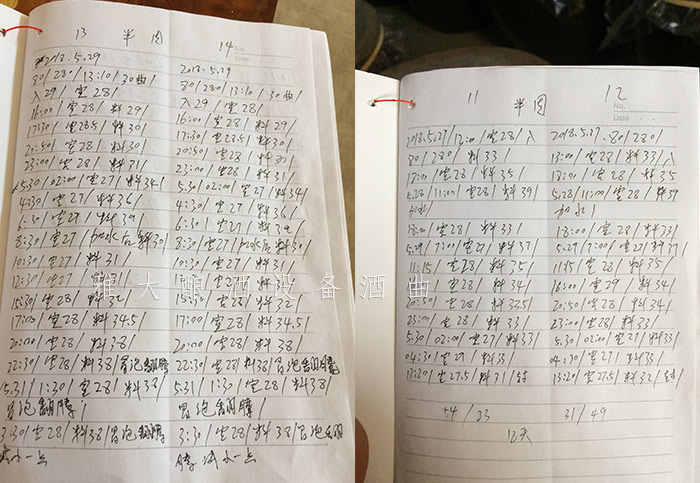 13 半肉 14
2018.5.29
30/28/13:10/30曲/
入29/室28/
16:00/室28/料29/
17:30/室28.5/料30/
20:50/室28/料30/
23:00/室28/料31/
5.30/02:00/室27/料34/
4:30/室27/料36/
6:30/室27/料39/
8:30/室27/加水后料30/
10:30/室27/料31/
12:30/室27/料31/
15:30/室28/料32/
17:00/室28/料34.5/
20:00/室28/料38/
22:30/室28/料38/冒泡翻腾
5.31/1:30/室28/料38/
冒泡翻腾/
3:30/室28/料38/冒泡翻腾
减小一点
2018.5.29
30/280/13:10/30曲/
入29/室28/
16:00/室28/料29/
17:30/室28.5/料30/
20:50/室28/料30/
23:00/室28/料31/
5.30/02:00/室27/料34/
4:30/室27/料36/
6:30/室27/料39/
8:30/室27/加水后料30/
10:30/室27/料31/
室27/料31/
15:30/室28/料32/
17:00/室28/料34.5/
20:00/室28/料38/
22:30/室28/料38/冒泡翻腾
5.31/1:30/室28/料38/
冒泡翻腾/
3:30/室28/料38/冒泡翻
腾减小一点
11 半肉 12
No.
Date
2018.5.27/12:00/室28/入
30/280/料33/
18:00/室28/料35/
5.28/11:00/室28/料39/
加水/
18:00/室28/料33/
5.29/7:00/室27/料37/
11:15/室28/料35/
料34/
20:50/室28/料33.5/
23:00/室28/料33/
5.30/02:00/室27/料33/
04:30/室27/料33/
13:20/室27.5/料31/封
54/33
2018.5.27.30/280/
13:00/室28/料33/入
18:00/室28/料35/
5.28/11:00/室28/料39
加水/
18:00/室28/料33/
5.29/7:00/室27/料37/
11:15/室28/料35/
16:00/室29/料34/
20:50/室28/料34/
23:00/室28/料33/
5.30/02:00/室27/料33/
04:30/室27/料33/
13:20/室27.5/料32/封/
31/49
12天
雅大酿酒设备酒曲